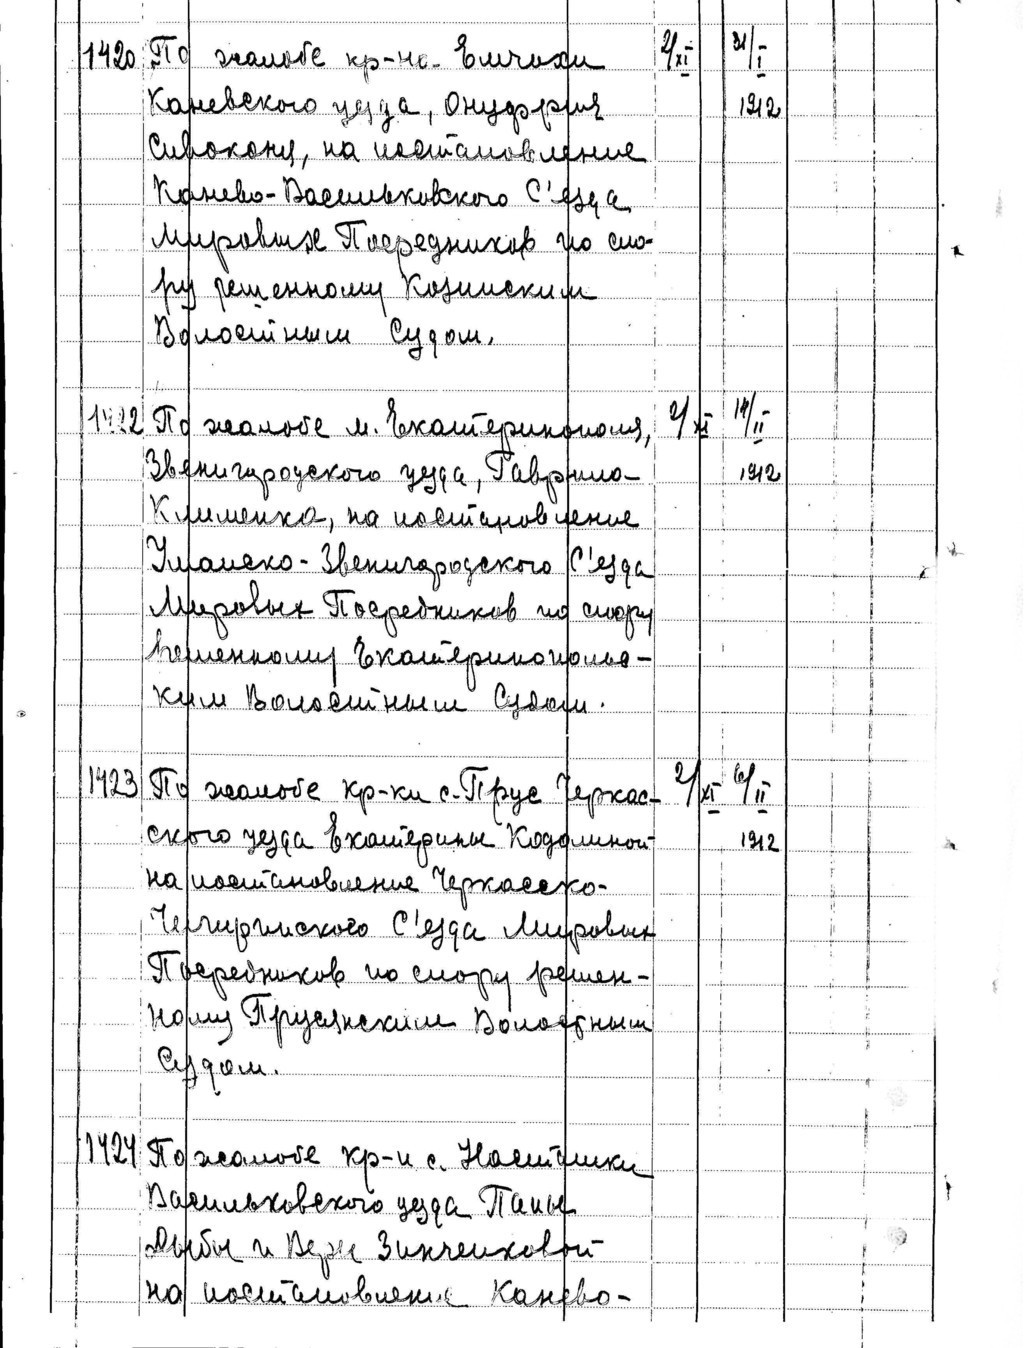 1420 По жалобе кр-на Емчихи 2/XI 31/I
Каневского уезда, Онуфрия 1912
Сивоконя, на постановление
Канево-Васильковского С'езда
Мировых Посредников по спо-
ру решенному Козинским
Волостным Судом.
1422 По жалобе м. Екатеринополя, 2/XI 14/II
Звенигородского уезда, Гаврила 1912
Клименка, на постановление
Уманско-Звенигородского С'езда
Мировых Посредников по спору
решенному Екатеринопольс-
ким Волостным Судом.
1423 По жалобе кр-ки с. Прус Черкас- 2/XI 6/II
ского уезда Екатерины Кодолиной 1912
на постановление Черкасско-
Чигиринского С'езда Мировых
Посредников по спору решен-
ному Прусянским Волостным
Судом.
1424 По жалобе кр-н с. Насташки
Васильковского уезда
и Веры Зинченковой
на постановление Канево-